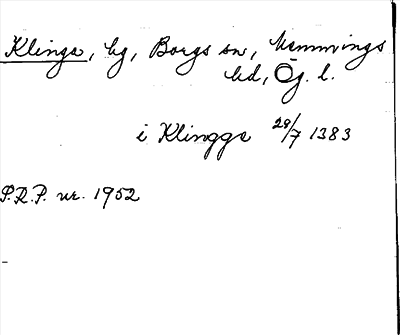 Klinga, by, Borgs sn, Memmings
hd, Ög. l.
i Klingga 29/7 1383
S.R.P. nr. 1952